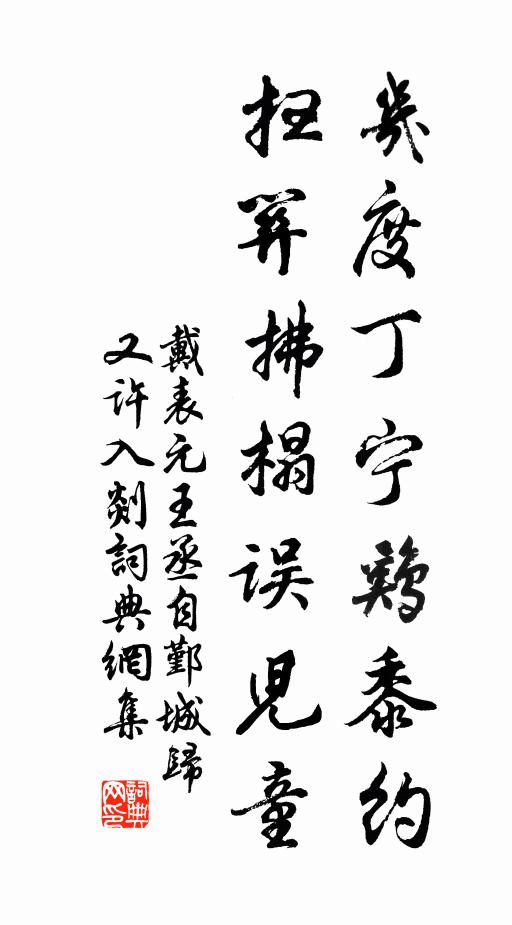 幾度丁宁鷄黍約
扫拂榻误兒童
戴表元王丞自鄞城歸
又許入剡詞典網集
詞典
网印